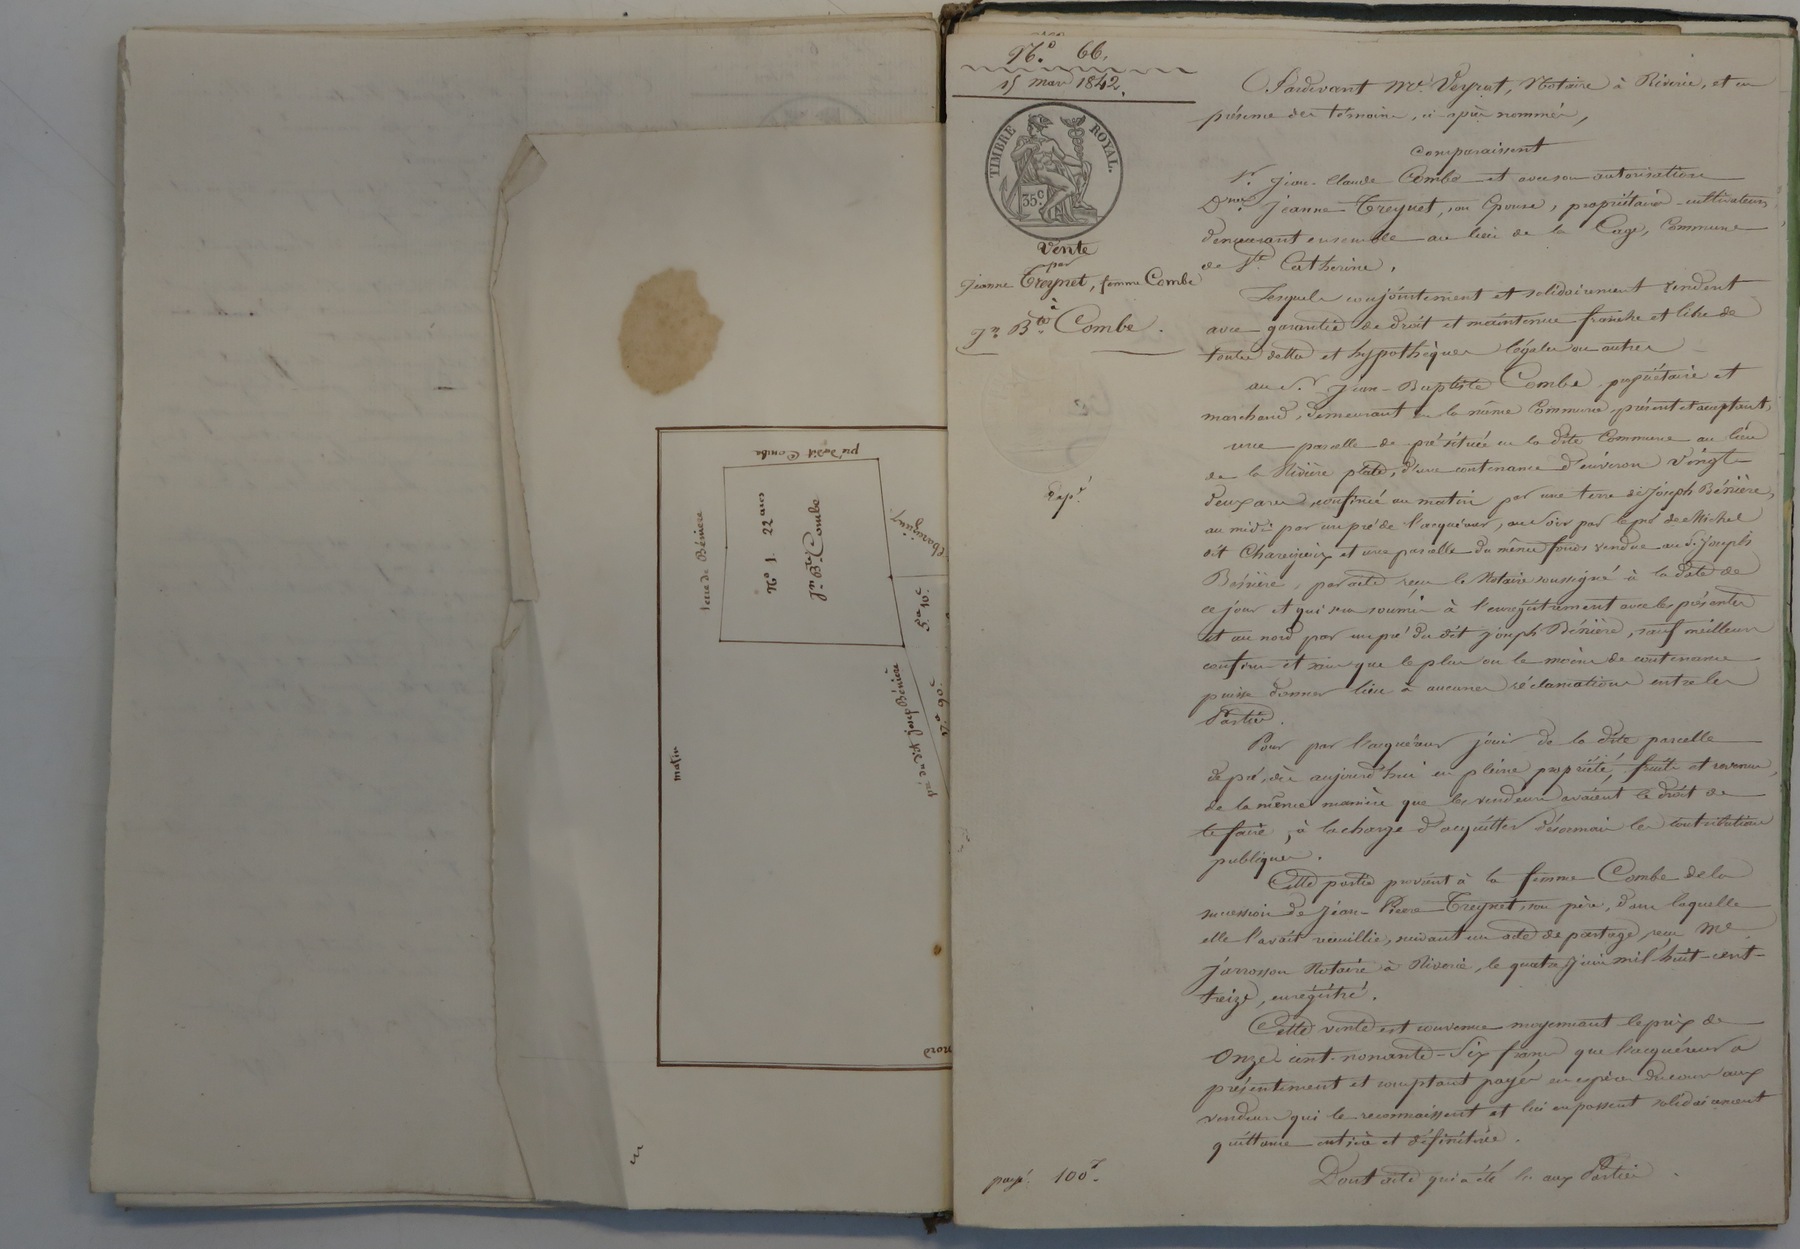 pré du dit Combe
terre de Bénière
No 1. 22 ares
Jn Bte Combe
Chareizieux
5a 10c
17a 90c
pré du dit josep Bénière
matin
nord
No. 66.
15 mars 1842.
TIMBRE ROYAL.
35c.
Vente
par
Jeanne Treynet, femme Combe
à
Jn. Bte. Combe.
Exp.é
payé. 100f.
Pardevant Me. Veyrat, Notaire à Riverie, et en
présence des témoins, ci-après nommés,
comparaissent
Sr. Jean-Claude Combe et avec son autorisation
Dme. Jeanne Treynet, son épouse, propriétaires-cultivateurs,
demeurant ensemble au lieu de la Cage, Commune
de Ste. Catherine,
Lesquels conjointement et solidairement vendent
avec garantie de droit et maintenue franche et libre de
toutes dettes et hypothèques légales ou autres
au Sr. Jean-Baptiste Combe, propriétaire et
marchand, demeurant en la même Commune, présent et acceptant,
une parcelle de pré située en la dite Commune au lieu
de la Rivière plate, d'une contenance d'environ vingt-
deux ares, confinée au matin par une terre de Joseph Bénière,
au midi par un pré de l'acquéreur, au soir par le pré de Michel
dit Chareizieux et une parcelle du même fonds vendue au Sr. Joseph
Bénière, par acte reçu le Notaire soussigné à la date de
ce jour et qui sera soumis à l'enregistrement avec les présentes
et au nord par un pré du dit Joseph Bénière, sauf meilleurs
confins et sans que le plus ou le moins de contenance
puisse donner lieu à aucunes réclamations entre les
Parties.
Pour par l'acquéreur jouir de la dite parcelle
de pré, dès aujourd'hui en pleine propriété, fruits et revenus,
de la même manière que les vendeurs avaient le droit de
le faire, à la charge d'acquitter désormais les contributions
publiques.
Cette partie provient à la femme Combe de la
succession de Jean-Pierre Treynet, son père, dans laquelle
elle l'avait recueillie, suivant un acte de partage, reçu Me.
Jarrosson Notaire à Riverie, le quatre juin mil-huit-cent-
treize, enregistré.
Cette vente est convenue moyennant le prix de
Onze-cent-nonante-Six francs que l'acquéreur a
présentement et comptant payés en espèces du cours aux
vendeurs qui le reconnaissent et lui en passent solidairement
quittance entière et définitive.
Dont acte qui a été lu aux Parties.